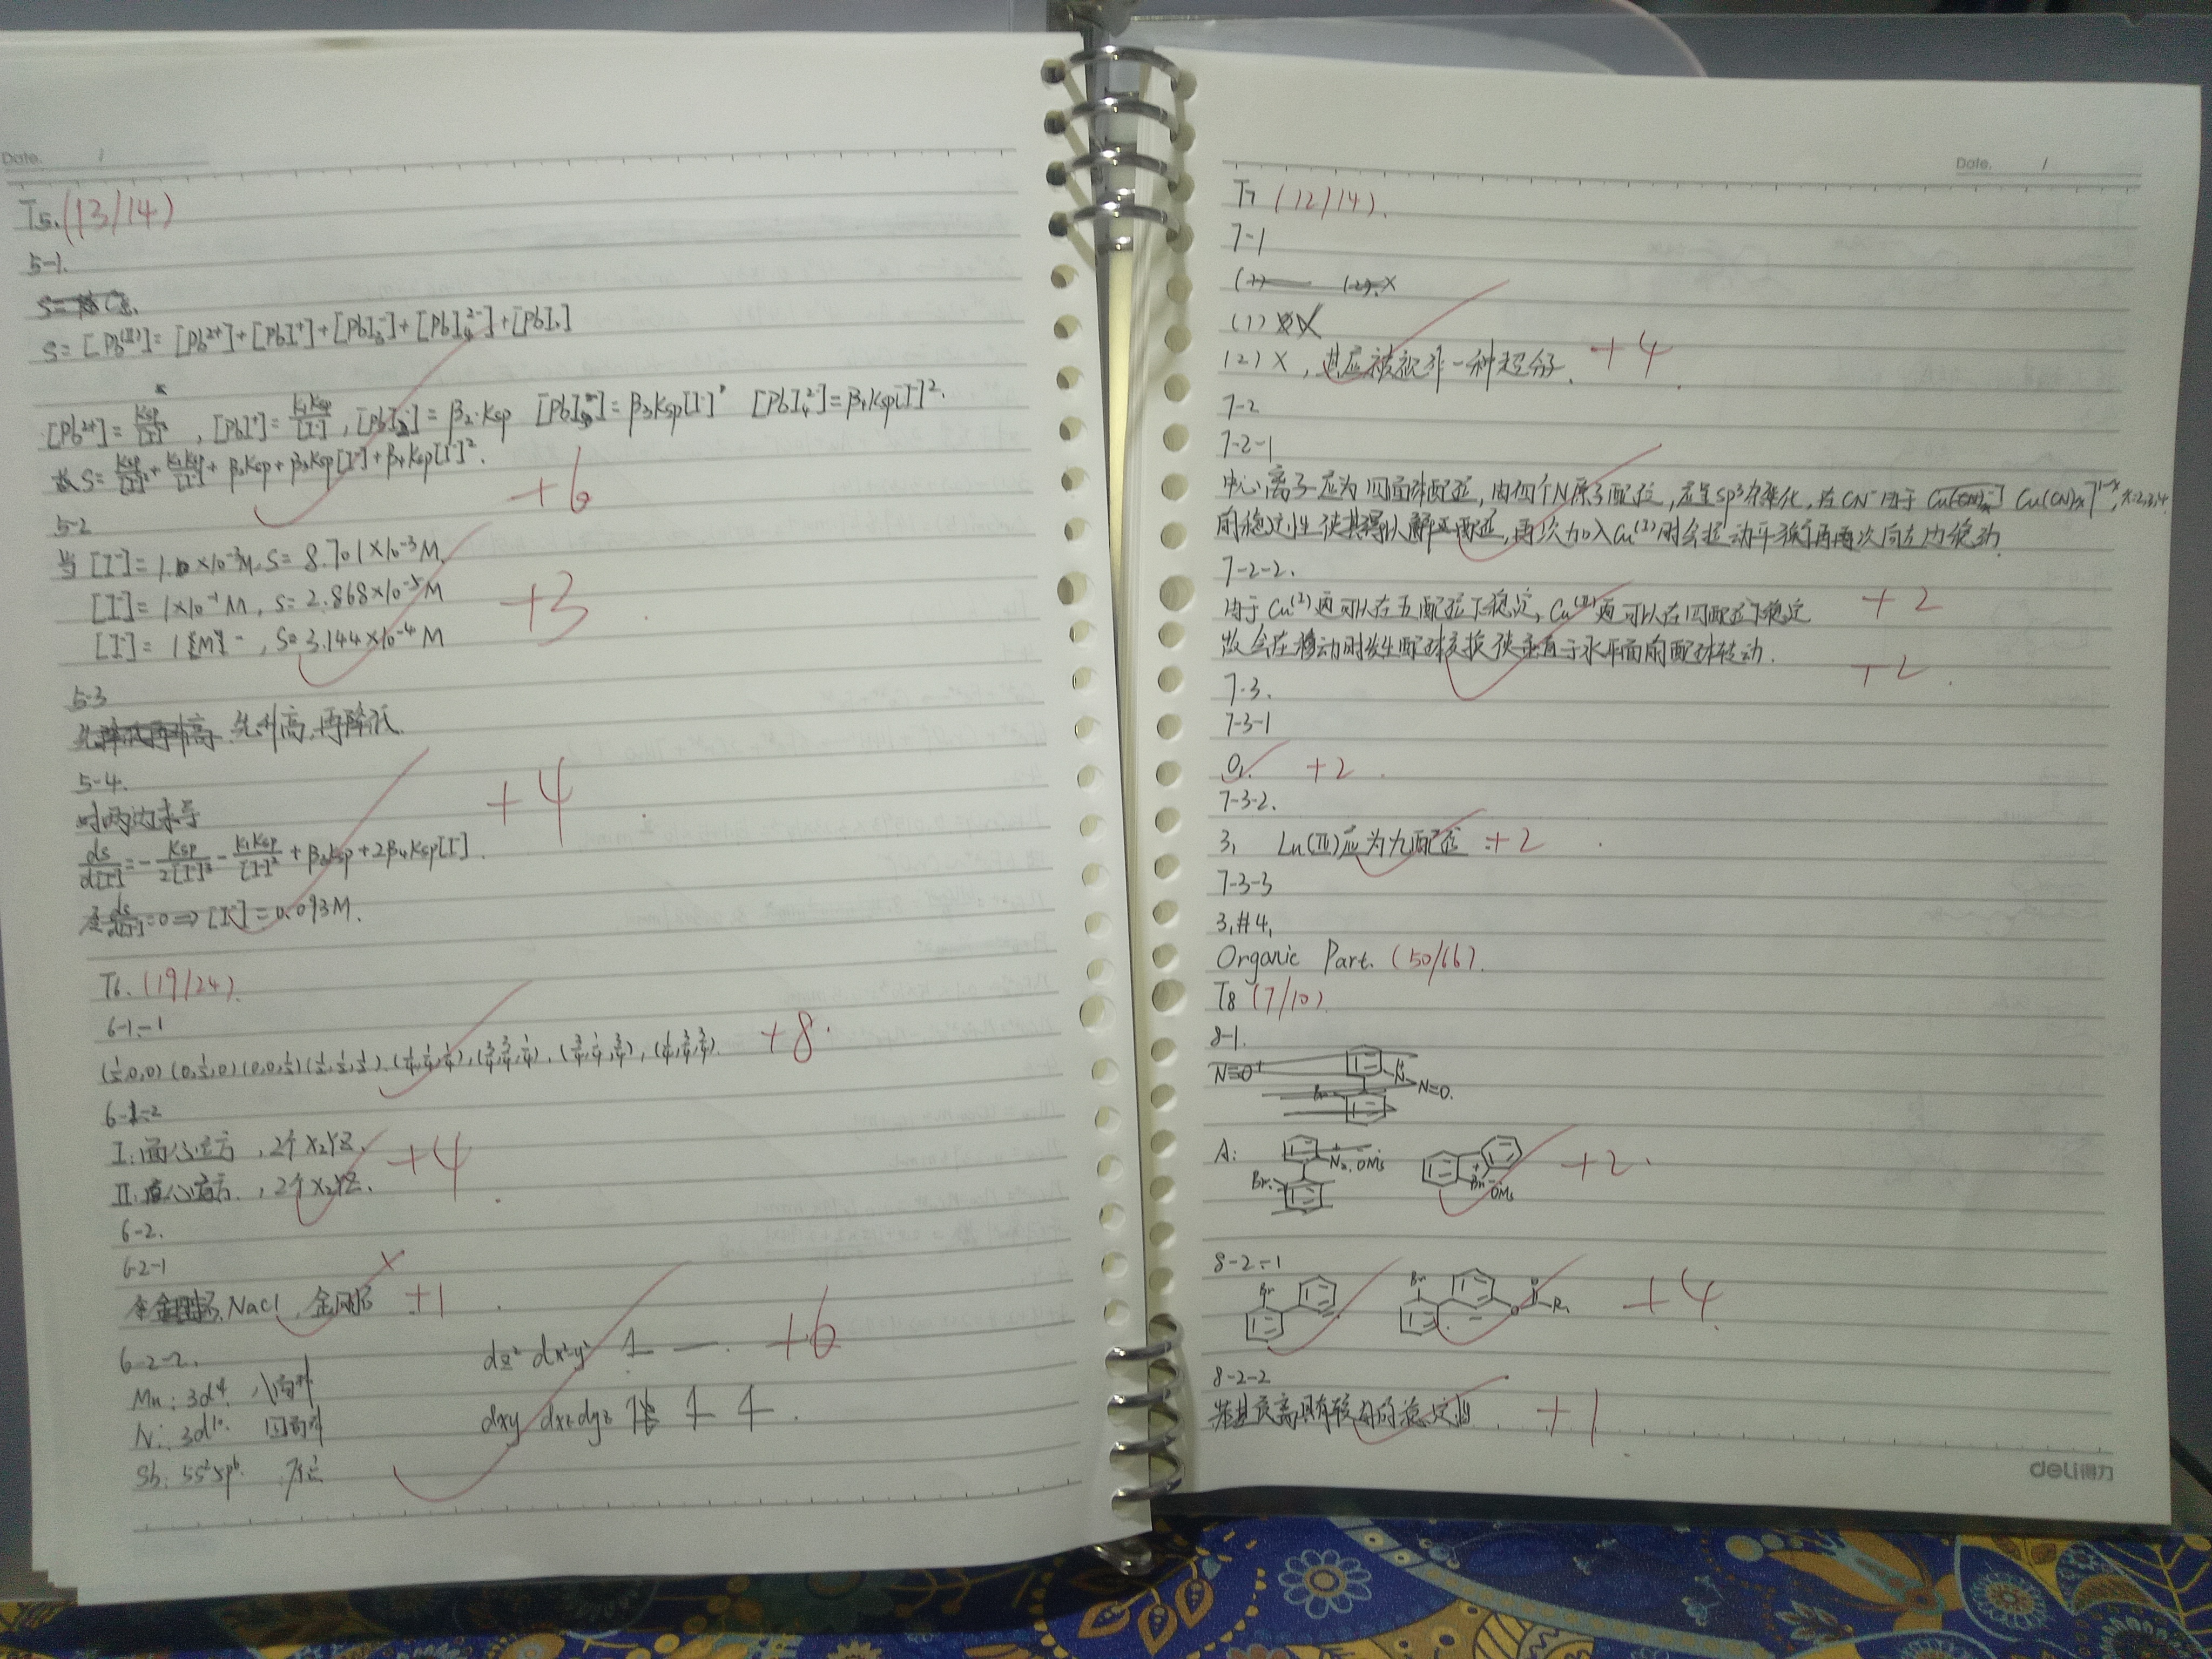 Date. /
T5. (13/14)
5-1.
S=
S = [Pb(II)] = [Pb²⁺]+[PbI⁺]+[PbI₃⁻]+[PbI₄²⁻]+[PbI₂]
[Pb²⁺]= Ksp/[I⁻]², [PbI⁺]= K₁Ksp/[I⁻], [PbI₂]= β₂·Ksp [PbI₃⁻]= β₃Ksp[I⁻] [PbI₄²⁻]= β₄Ksp[I⁻]².
故 S= Ksp/[I⁻]² + K₁Ksp/[I⁻] + β₂Ksp+ β₃Ksp[I⁻]+β₄Ksp[I⁻]².
+6
5-2
当 [I⁻]= 1.0×10⁻³M, S= 8.701×10⁻³M
[I⁻]= 1×10⁻¹M, S= 2.868×10⁻⁵M
+3
[I⁻]= 1[M], S= 3.144×10⁻⁴M
5-3
先降低再升高 先升高,再降低
5-4.
+4
对两边求导
ds/d[I⁻] = - Ksp/2[I⁻]³ - K₁Ksp/[I⁻]² + β₃Ksp+2β₄Ksp[I⁻].
令 ds/d[I⁻]=0 ⇒ [I⁻]=0.093M.
T6. (19/24)
6-1-1
(½,0,0) (0,½,0) (0,0,½) (½,½,½) (¼,¼,¼), (¾,¾,¼), (¾,¼,¾), (¼,¾,¾). +8
6-1-2
I:面心立方,2个X₂YZ.
+4
II: 心方,2个X₂YZ.
6-2.
6-2-1
NaCl,金刚石 × +1
6-2-2.
dz² dx²-y² 1 — +6
Mn: 3d⁴. 八面体
Ni: 3d¹⁰. 四面体
dxy dxz dyz 1 1 1.
Sb: 5s²5p⁶.
Date. /
T7 (12/14).
7-1
(1) (2).×
(1) ×
(2) ×,其应被视作一种超分子. +4
7-2
7-2-1
中心离子应为四面体配位,由四个N原子配位,应呈sp³杂化,在CN⁻由于 Cu(CN)ₓ]¹⁻ˣ, x=2,3,4
的稳定性使其得以解 配位,再次加入Cu(I)时会拉动平衡再次向左边移动
7-2-2.
由于Cu(I)更可以在五配位下稳定,Cu(II)更可以在四配位下稳定 +2
故会在移动时发生配体交换使垂直于水平面的配体转动. +2
7-3.
7-3-1
0. +2
7-3-2.
3, Lu(III)应为九配位 +2
7-3-3
3,#4,
Organic Part. (50/66).
T8 (7/10)
8-1.
N≡O⁺ Br N N=O.
A: N₂.OMs Br Br OMs +2
8-2-1
Br Br O O R₁ +4
8-2-2
苯基负离具有较 的稳定性 +1
deli得力